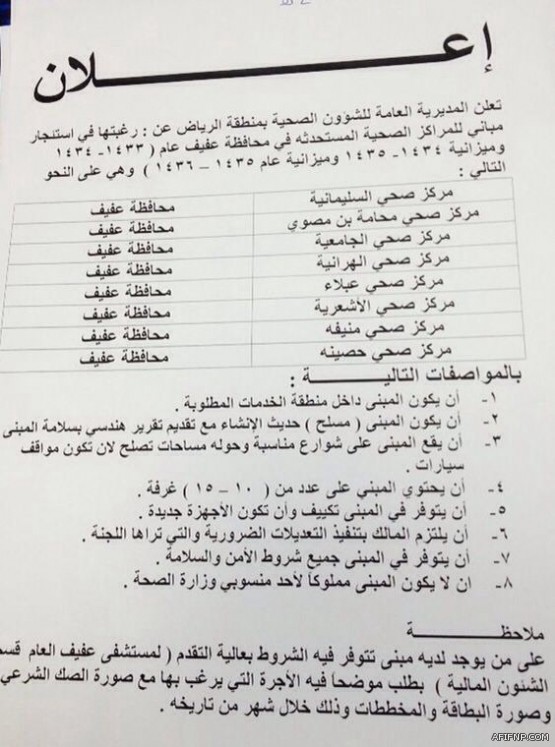 إعـــــلان
تعلن المديرية العامة للشؤون الصحية بمنطقة الرياض عن : رغبتها في استئجار
مباني للمراكز الصحية المستحدثه في محافظة عفيف عام ( ١٤٣٣- ١٤٣٤
وميزانية ١٤٣٤- ١٤٣٥ وميزانية عام ١٤٣٥ – ١٤٣٦ ) وهي على النحو
التالي :
مركز صحي السليمانية محافظة عفيف
مركز صحي محامة بن مصوي محافظة عفيف
مركز صحي الجامعية محافظة عفيف
مركز صحي الهرانية محافظة عفيف
مركز صحي عبلاء محافظة عفيف
مركز صحي الأشعرية محافظة عفيف
مركز صحي منيفه محافظة عفيف
مركز صحي حصينه محافظة عفيف
بالمواصفات التاليـــة :
١- أن يكون المبنى داخل منطقة الخدمات المطلوبة .
٢- أن يكون المبنى ( مسلح ) حديث الإنشاء مع تقديم تقرير هندسي بسلامة المبنى
٣- أن يقع المبنى على شوارع مناسبة وحوله مساحات تصلح لان تكون مواقف
سيارات .
٤- أن يحتوي المبني على عدد من ( ١٠ – ١٥ ) غرفة .
٥- أن يتوفر في المبنى تكييف وأن تكون الأجهزة جديدة .
٦- أن يلتزم المالك بتنفيذ التعديلات الضرورية والتي تراها اللجنة .
٧- أن يتوفر في المبنى جميع شروط الأمن والسلامة .
٨- ان لا يكون المبنى مملوكاً لأحد منسوبي وزارة الصحة .
ملاحظـــة
على من يوجد لديه مبنى تتوفر فيه الشروط بعالية التقدم ( لمستشفى عفيف العام قسم
الشئون المالية ) بطلب موضحاً فيه الأجرة التي يرغب بها مع صورة الصك الشرعي
وصورة البطاقة والمخططات وذلك خلال شهر من تاريخه .
AFIFNP.COM